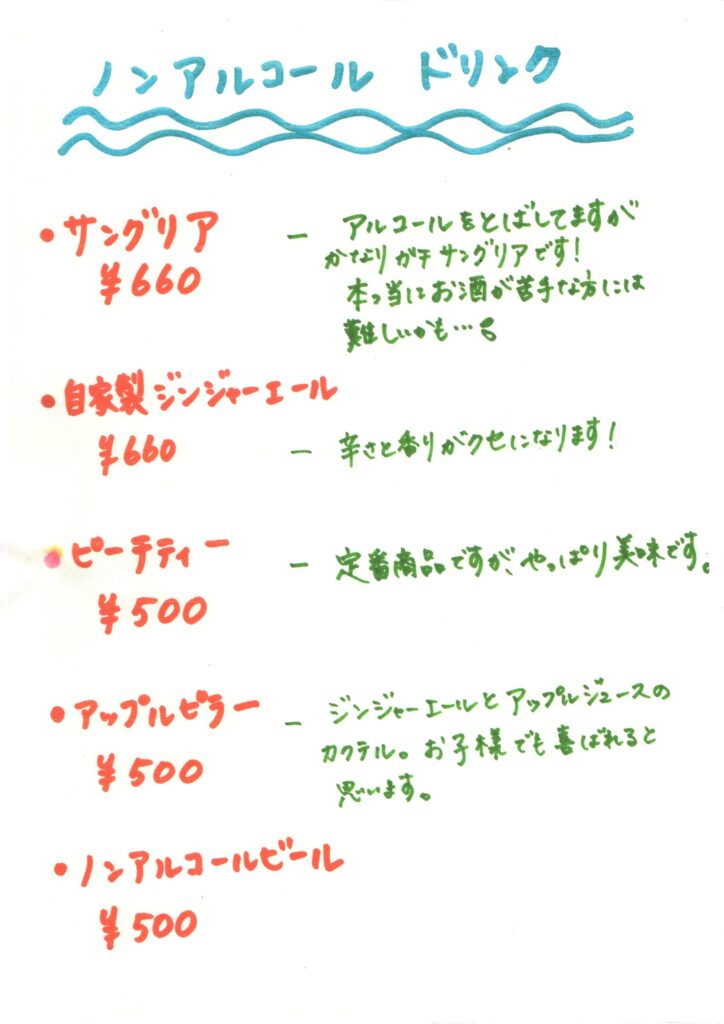 ノンアルコール ドリンク
・サングリア
¥660
― アルコールをとばしてますが
かなりガチサングリアです!
本当にお酒が苦手な方には
難しいかも…
・自家製ジンジャーエール
¥660
― 辛さと香りがクセになります!
・ピーチティー
¥500
― 定番商品ですが、やっぱり美味です。
・アップルピラー
¥500
― ジンジャーエールとアップルジュースの
カクテル。お子様でも喜ばれると
思います。
・ノンアルコールビール
¥500